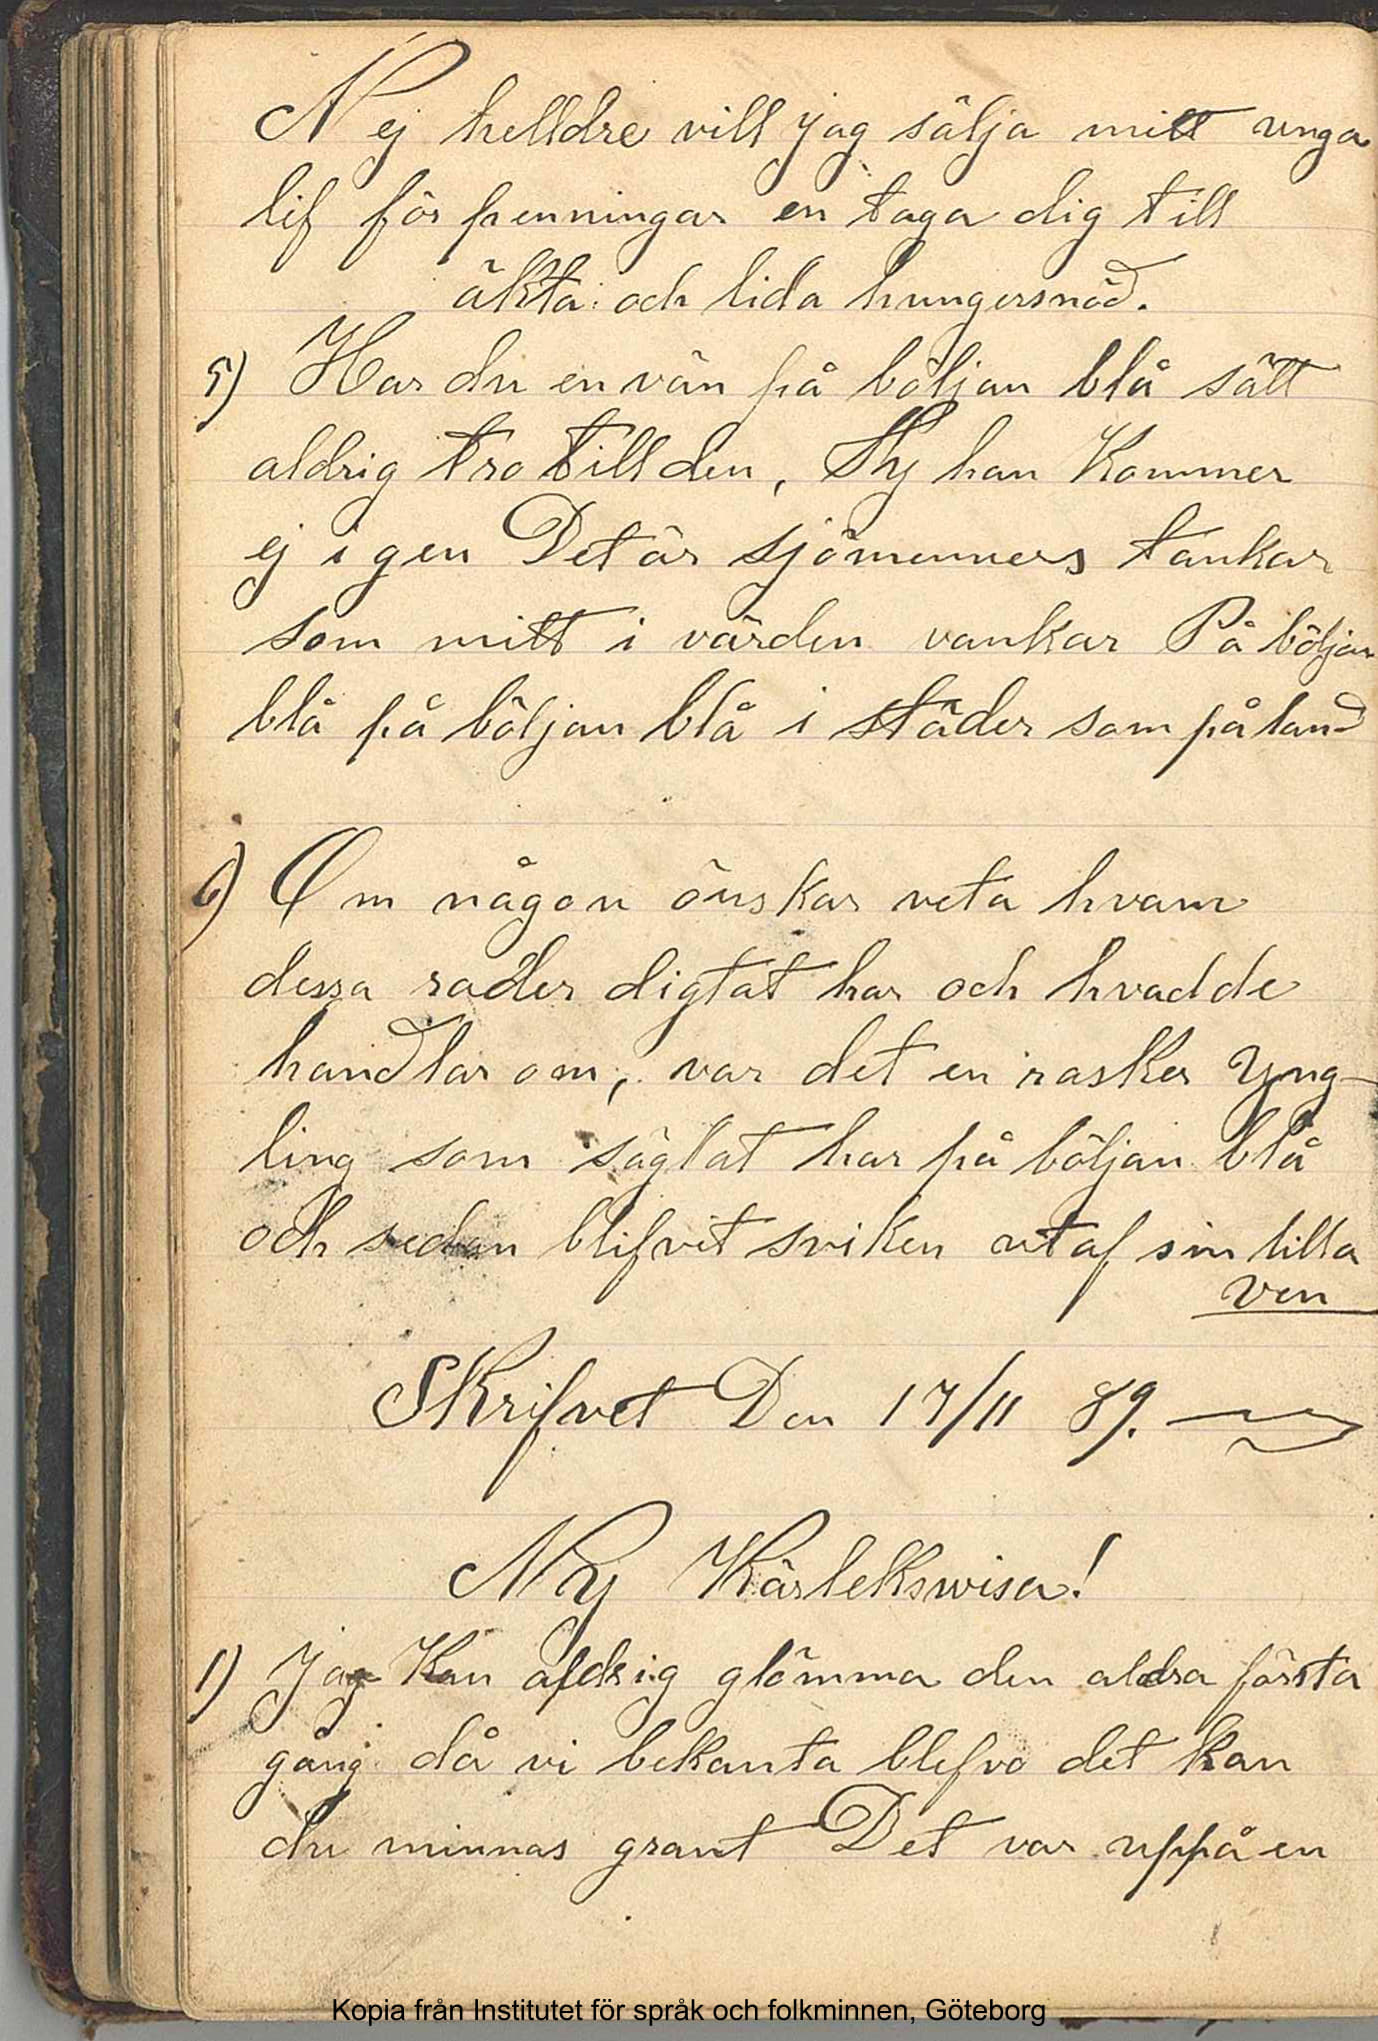 Nej helldre vill jag sälja mitt unga
lif för penningar en taga dig till
äkta och lida hungersnöd.
5) Har du en vän på böljan blå sätt
aldrig tro till den, Thy han kommer
ej i gen Det är sjömenners tankar
som mitt i värden vankar På böljan
blå på böljan blå i städer som på land
6) Om någon önskar veta hvam
dessa rader digtat har och hvad de
handlar om, var det en rasker Yng-
ling som säglat har på böljan blå
och sedan blifvit sviken utaf sin lilla
ven
Skrifvet Den 17/11 89.
Ny Kärlekswisa!
1) Jag Kan aldrig glömma den aldra första
gång då vi bekanta blefvo det kan
du minnas grant Det var uppå en
Kopia från Institutet för språk och folkminnen, Göteborg